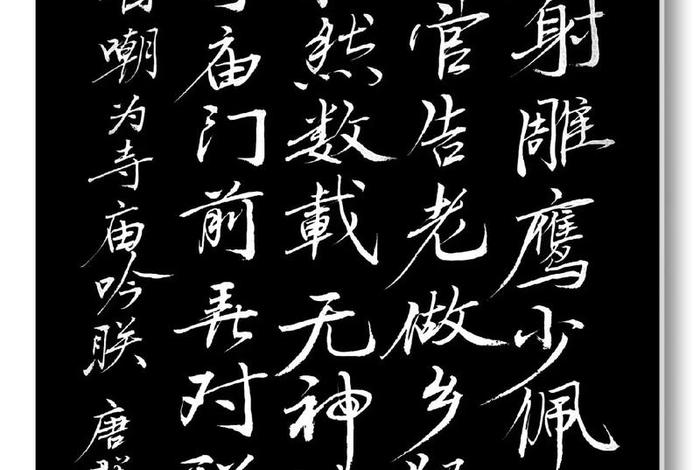 射雕鹰少佩
官告老做乡
然数载无神
庙门前弄对
嘲为寺庙吟朕 唐